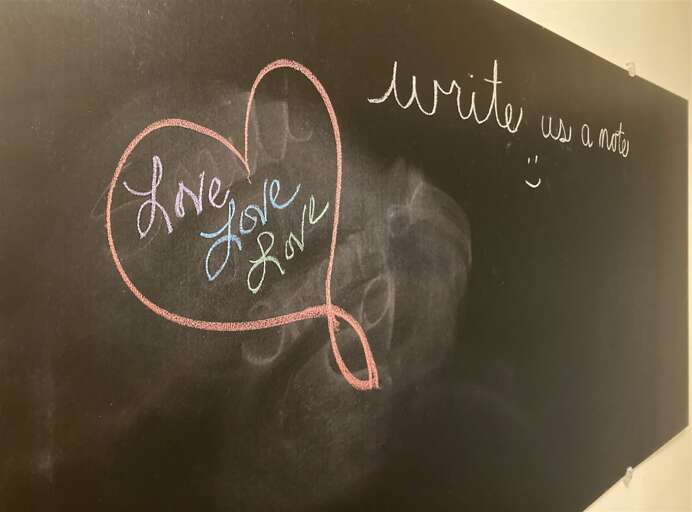 write us a note
:)
Love
Love
Love